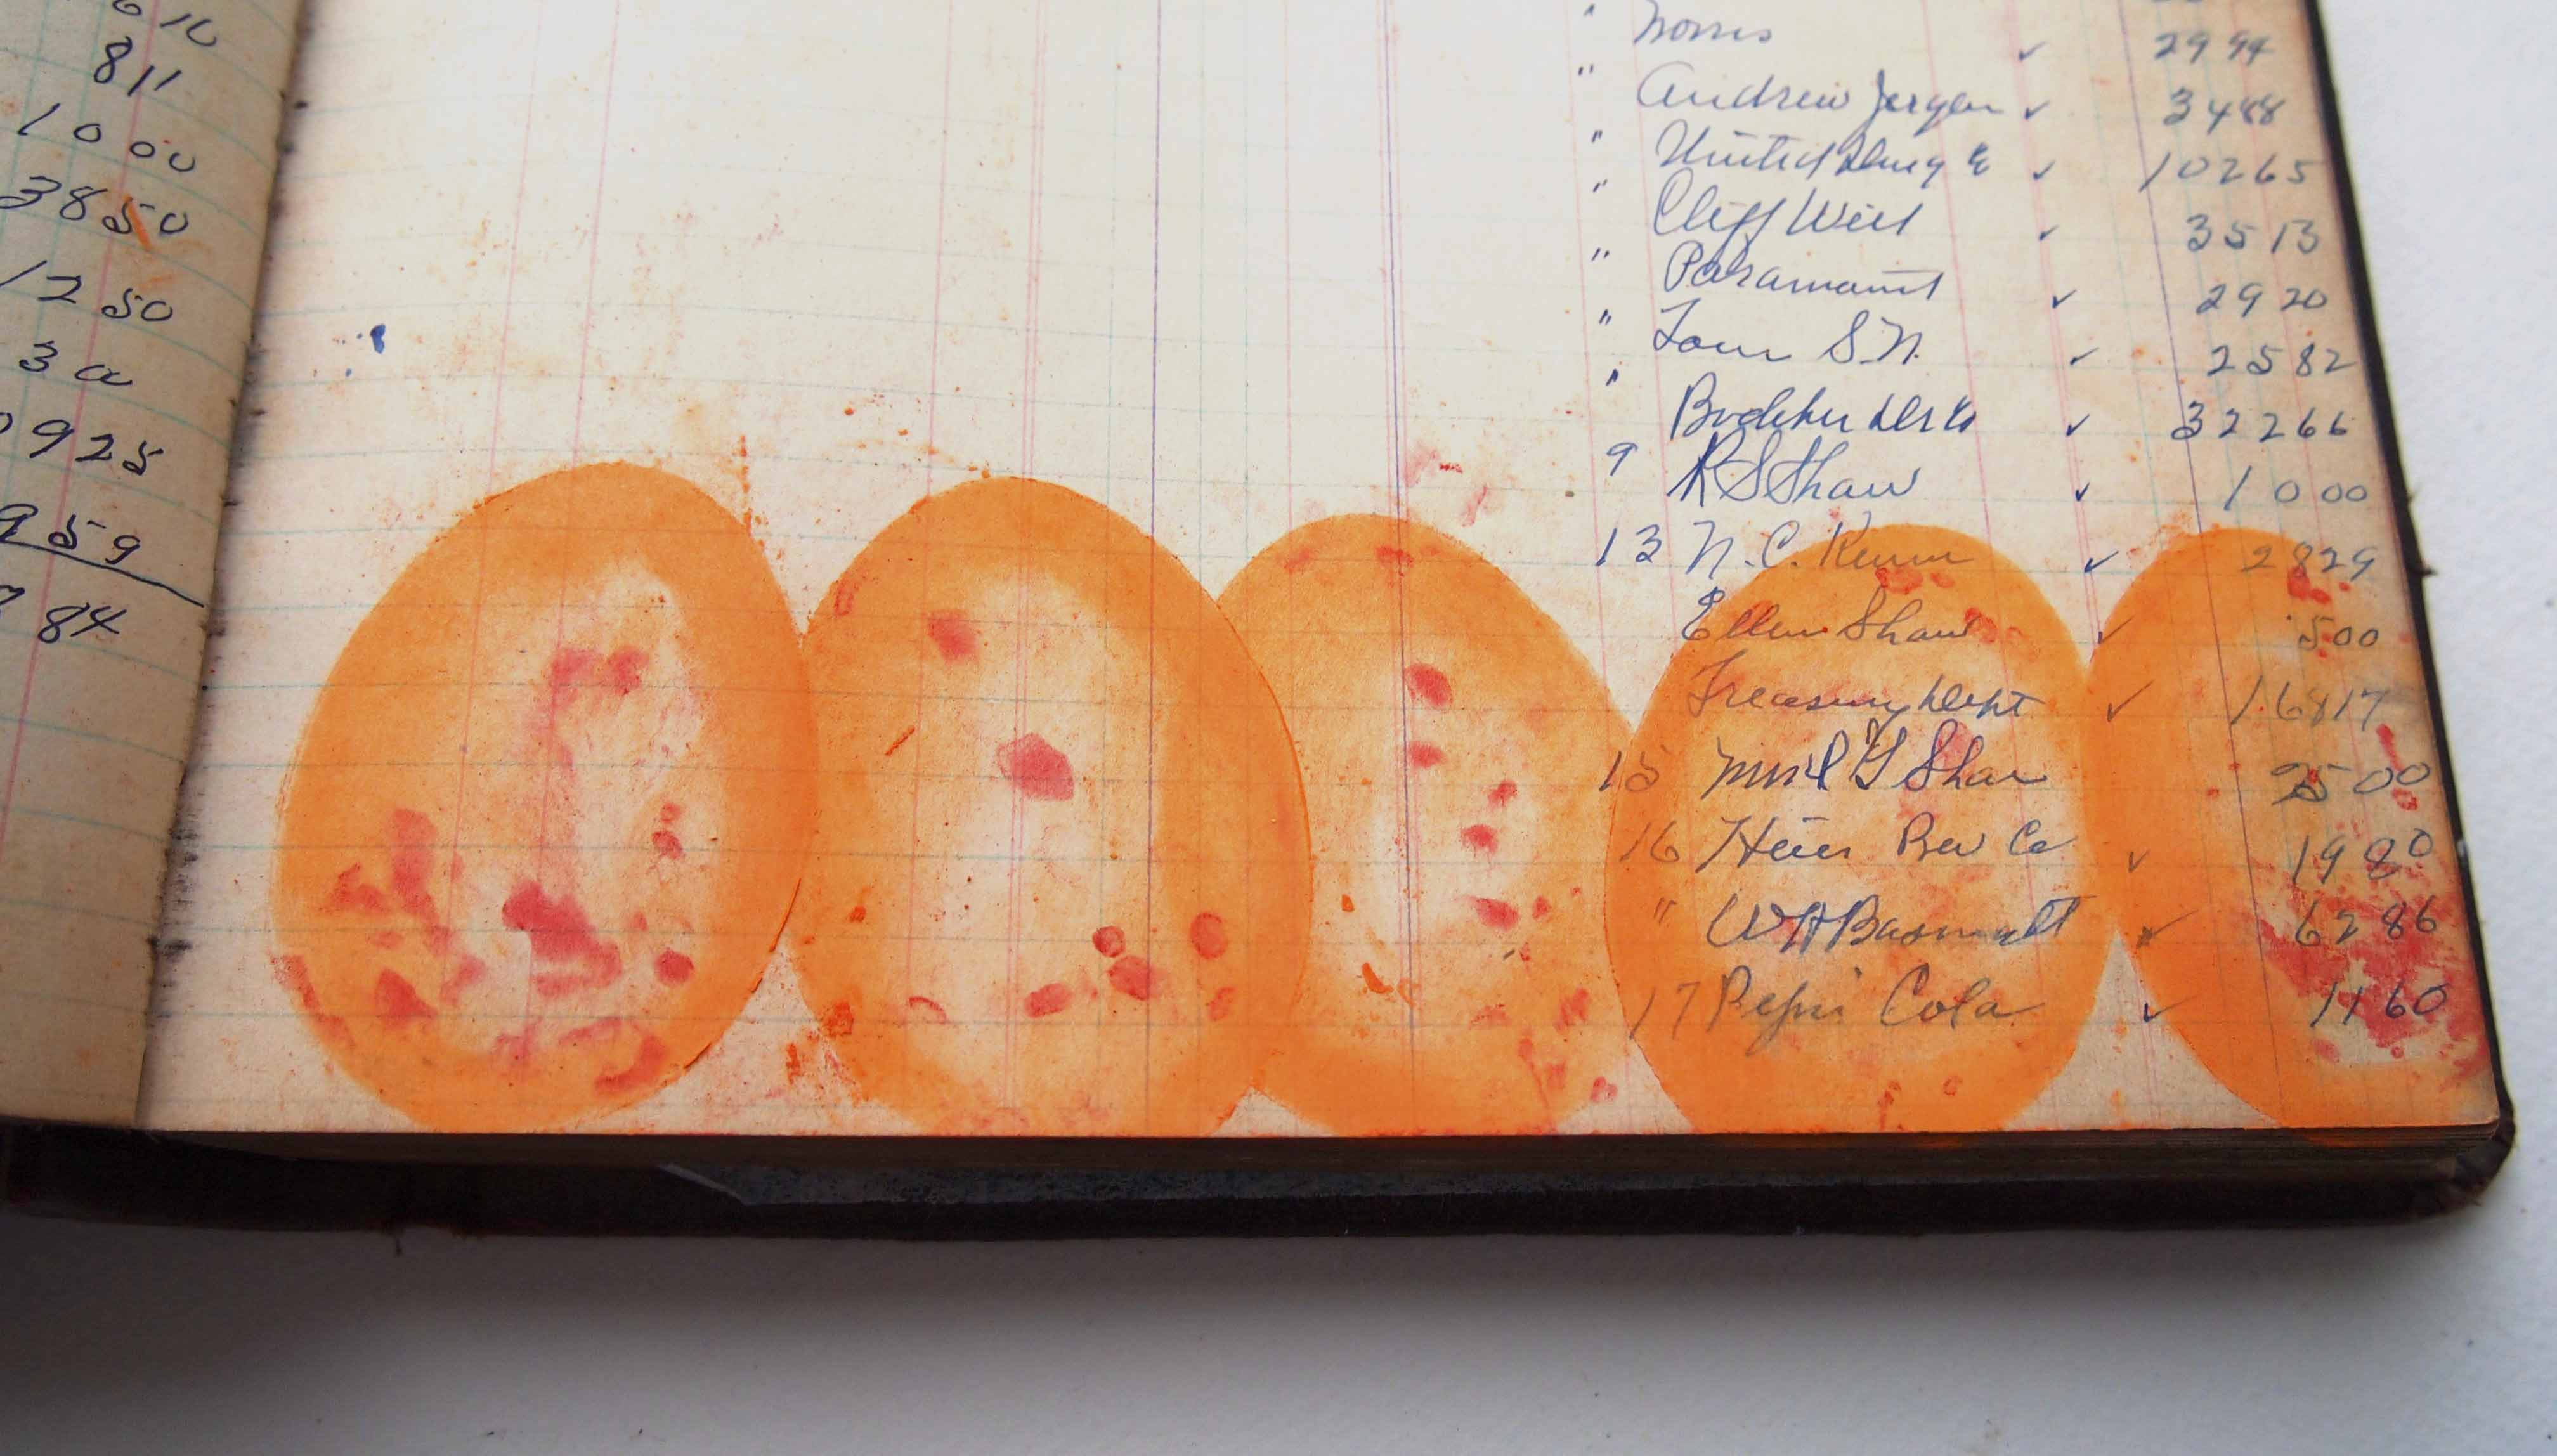 811
10 00
38 50
12 50
3 00
9 25
9 59
84
" Norris ✓ 29 94
" Andrew Jergen ✓ 34 88
" United Drug Co ✓ 102 65
" Cliff Weil ✓ 35 13
" Paramount ✓ 29 20
" S.N. ✓ 25 82
" Bodeker ✓ 322 66
9 R S Shaw ✓ 10 00
13 N.C. ✓ 28 29
Ellen Shaw ✓ 5 00
Treasury Dept ✓ 168 17
15 Shaw 25 00
16 Bev Co ✓ 19 80
" W H ✓ 62 86
17 Pepsi Cola ✓ 11 60